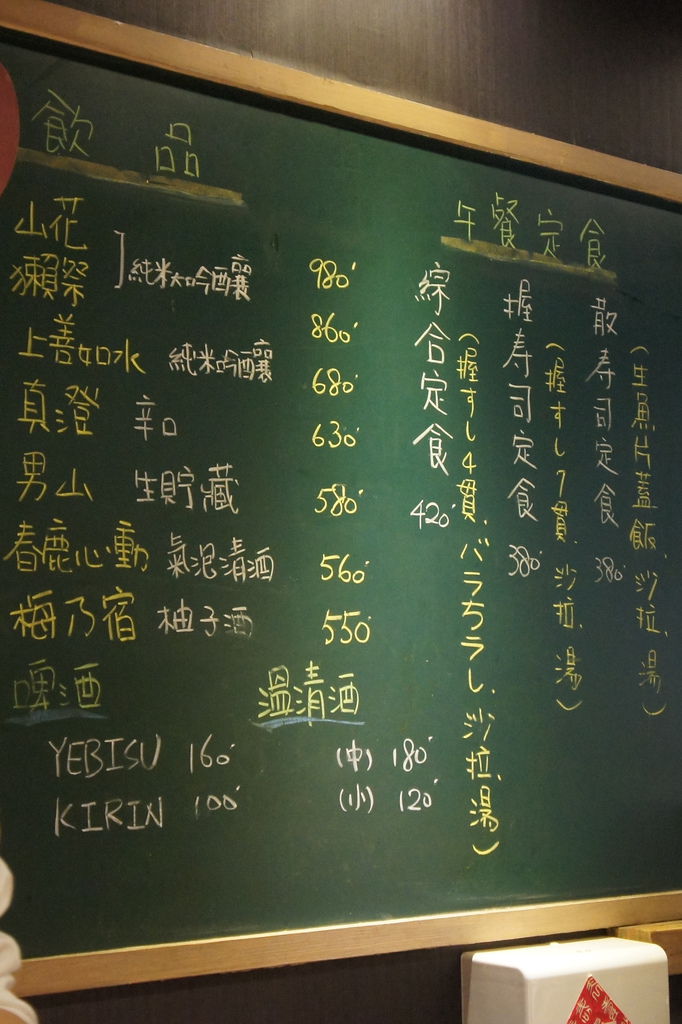 飲品
山花
獺祭
純米大吟釀
980
上善如水 純米吟釀 860
真澄 辛口 680
630
男山 生貯藏 580
春鹿心動 氣泡清酒 560
梅乃宿 柚子酒 550
啤酒
YEBISU 160
KIRIN 100
溫清酒
(中) 180
(小) 120
午餐定食
散壽司定食 380
(生魚片蓋飯、沙拉、湯)
握壽司定食 380
(握すし7貫、沙拉、湯)
綜合定食 420
(握すし4貫、バラちラし、沙拉、湯)